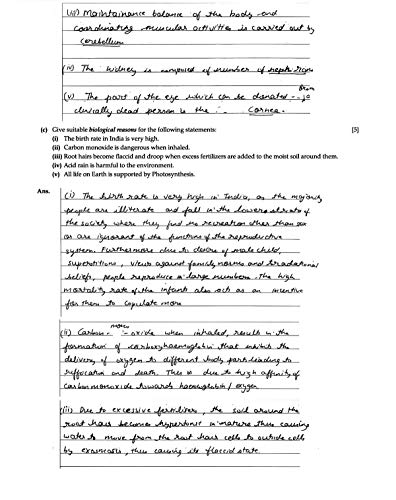 (iii) Maintainance balance of the body and
coordinating muscular activities is carried out by
cerebellum
(iv) The kidney is composed of number of nephrons
(v) The part of the eye which can be donated Brain
clinically dead person is the :- Cornea.
(c) Give suitable biological reasons for the following statements: [5]
(i) The birth rate in India is very high.
(ii) Carbon monoxide is dangerous when inhaled.
(iii) Root hairs become flaccid and droop when excess fertilizers are added to the moist soil around them.
(iv) Acid rain is harmful to the environment.
(v) All life on Earth is supported by Photosynthesis.
Ans.
(i) The birth rate is very high in India, as the majority
people are illiterate and fall in the lower strata of
the society where they find no recreation other than sex
or are ignorant of the functions of the reproductive
system. Furthermore due to desire of male child,
superstitions, views against family norms and traditional
beliefs, people reproduce in large numbers. The high
mortality rate of the infants also acts as an incentive
for them to copulate more
(ii) Carbon monoxide when inhaled, results in the
formation of carboxyhaemoglobin that inhibits the
delivery of oxygen to different body parts leading to
suffocation and death. This is due to high affinity of
carbon monoxide towards haemoglobin / oxygen
(iii) Due to excessive fertilizers, the soil around the
root hair becomes hypertonic in nature thus causing
water to move from the root hair cells to outside cells
by exosmosis, thus causing its flaccid state.